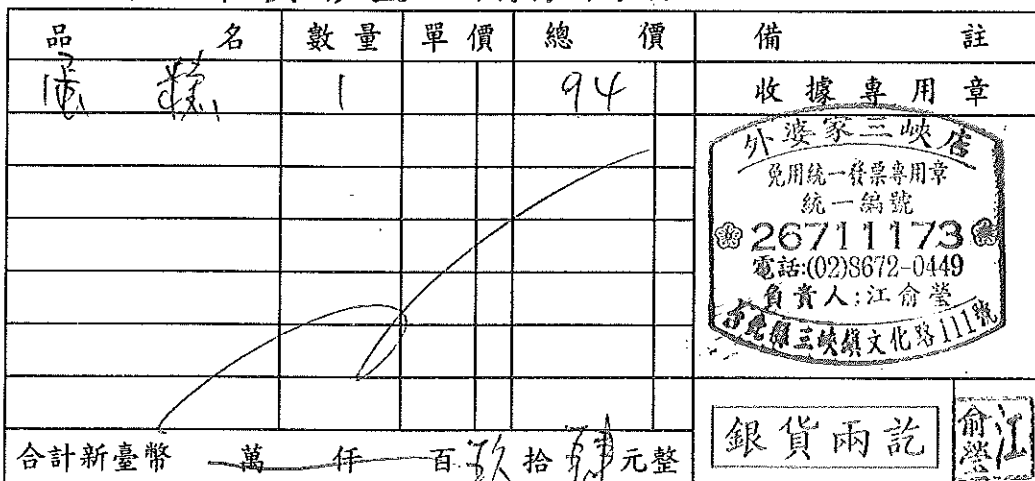 品名 數量 單價 總價 備註
1 94
收據專用章
外婆家三峽店
免用統一發票專用章
統一編號
26711173
電話:(02)8672-0449
負責人:江俞瑩
台北縣三峽鎮文化路111號
合計新臺幣 萬 仟 百 玖 拾 肆 元整
銀貨兩訖
江俞瑩